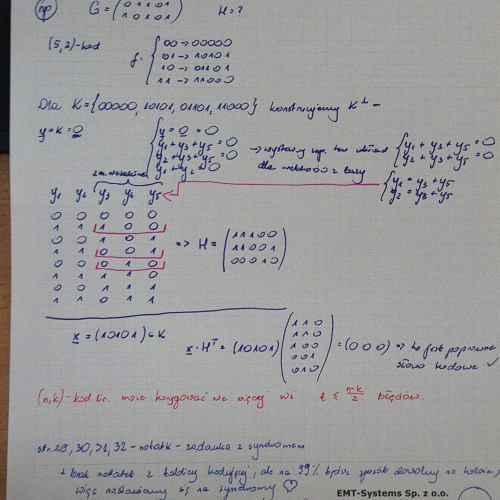 np G = (0 1 1 0 1
1 0 1 0 1) H = ?
(5,2)-kod f: { 00 → 00000
01 → 10101
10 → 01101
11 → 11000
Dla K = {00000, 10101, 01101, 11000} konstruujemy K⊥ –
y ∘ K = 0 { y ∘ 0 = 0
y1 + y3 + y5 = 0
y2 + y3 + y5 = 0
y1 + y2 = 0
→ wystarczy ten układ
dla wektorów z bazy
{ y1 + y3 + y5 = 0
y2 + y3 + y5 = 0
{ y1 = y3 + y5
y2 = y3 + y5
y1 y2 y3 y4 y5
0 0 0 0 0
1 1 1 0 0
0 0 0 1 0
1 1 0 0 1
=> H = (1 1 1 0 0
1 1 0 0 1
0 0 0 1 0)
x = (10101) ∈ K
x · H^T = (10101) (1 1 0
1 1 0
1 0 0
0 0 1
0 1 0) = (0 0 0) => to jest poprawne
słowo kodowe ✓
(n,k)-kod lin. może korygować nie więcej niż t ≤ n-k/2 błędów.
str. 29, 30, 31, 32 – notatki – zadanka z syndromem
+ brak notatek z tablicy kodującej, ale na 99% będzie sposób dowolny na kolosie,
więc nastawiamy się na syndromy ♡
EMT-Systems Sp. z o.o.